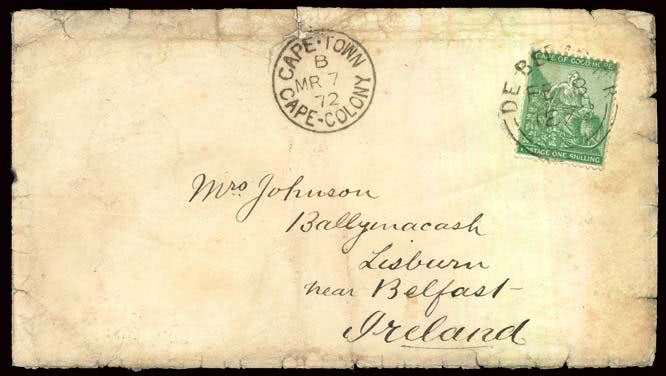 CAPE·TOWN
B
MR 7
72
CAPE-COLONY
CAPE OF GOOD HOPE
POSTAGE ONE SHILLING
DE
FE
Mrs Johnson
Ballymacash
Lisburn
near Belfast
Ireland